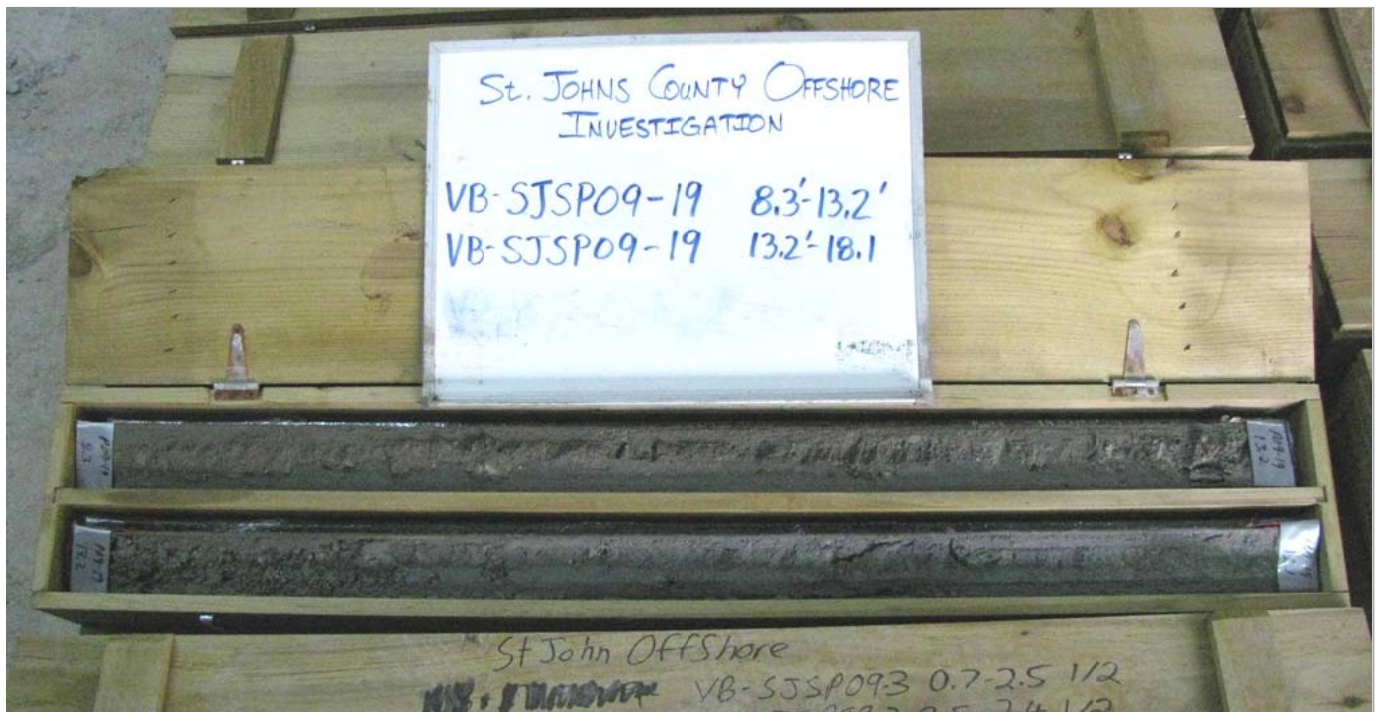 St. JOHNS COUNTY OFFSHORE
INVESTIGATION
VB-SJSP09-19 8.3'-13.2'
VB-SJSP09-19 13.2'-18.1
P09-19
13.2
St John OffShore
VB-SJSP09-3 0.7-2.5 1/2